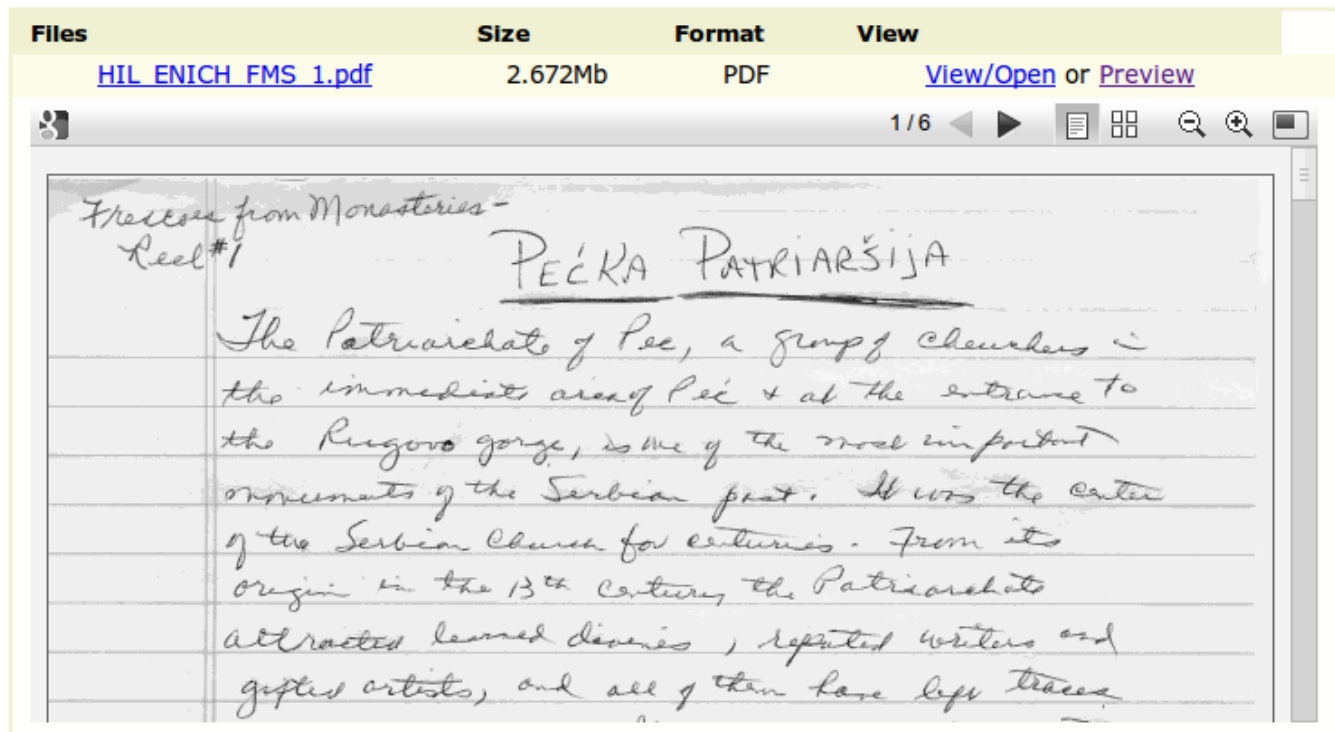 Files Size Format View
HIL_ENICH_FMS_1.pdf 2.672Mb PDF View/Open or Preview
g 1 / 6
Frescoes from Monasteries -
Reel #1
PEĆKA PATRIARŠIJA
The Patriarchate of Pec, a group of churches in
the immediate area of Peć + at the entrance to
the Rugovo gorge, is one of the most important
monuments of the Serbian past. It was the center
of the Serbian Church for centuries. From its
origin in the 13th century, the Patriarchate
attracted learned divines, reputed writers and
gifted artists, and all of them have left traces